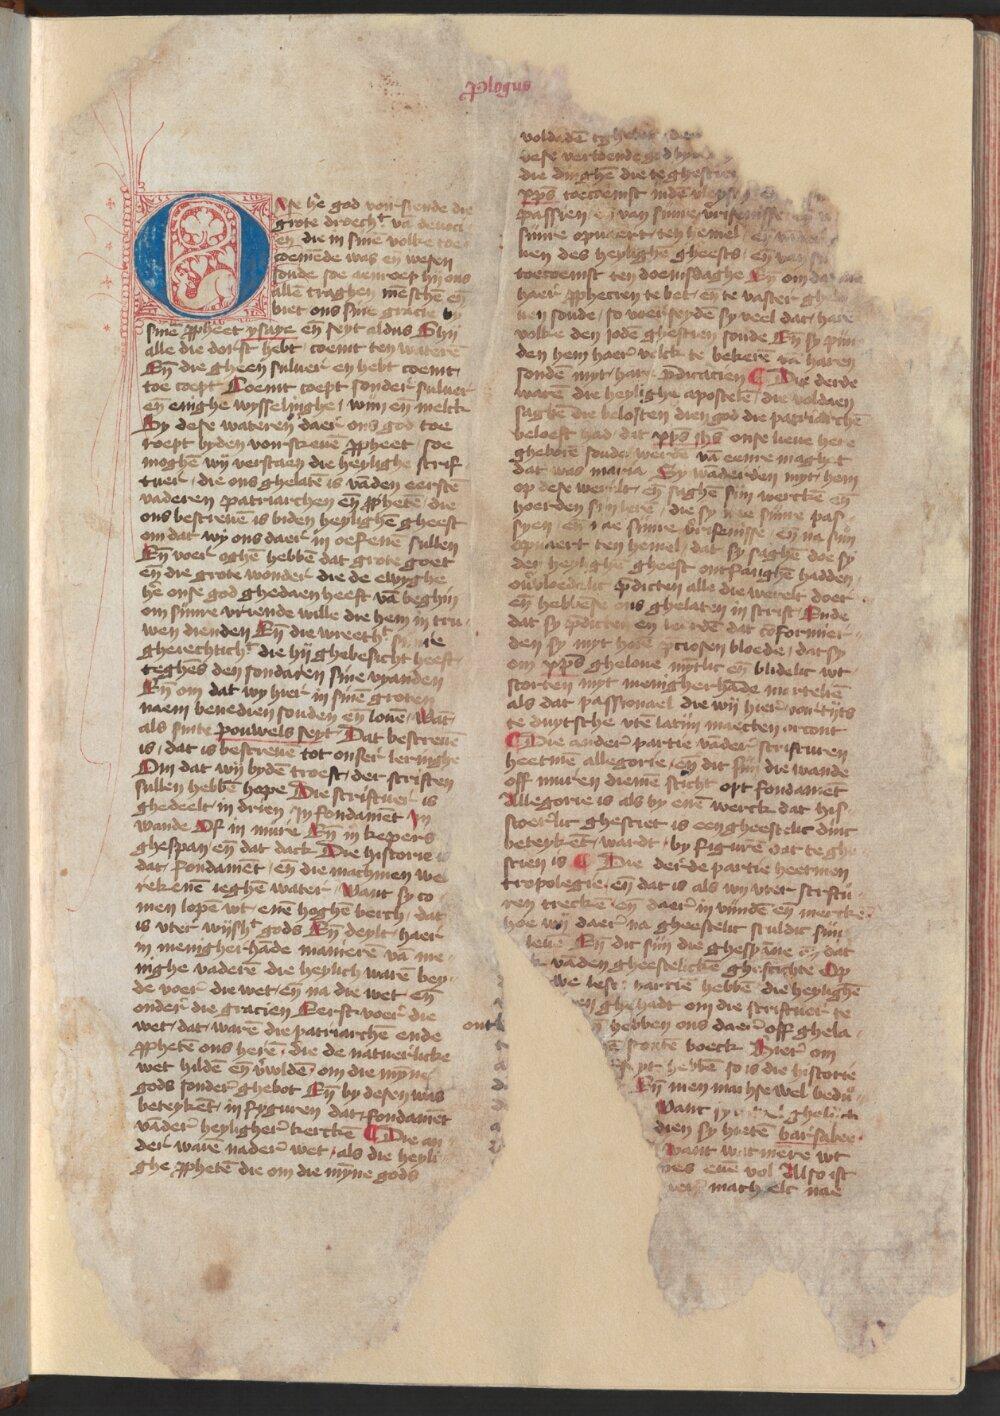 Plogus
Ose he god voir siende die
grote droechᵗ vā devoci
en die in sine volke toe
comēde was en wesen
soude soe aenroep hij ons
allē traghen mēschē eñ
biet ons sine gracie by
sinē ppheet ysaye eñ seyt aldus Ghij
alle die dorst hebt / coemt ten waterē
Eñ die gheen suluer en hebt coemt
toe coept Coemt coept sonder suluer
eñ enighe wysselinghe / wijn eñ melck
By dese wateren daer ons god toe
roept byden voirscreuē ppheet / soe
moghē wij verstaen die heylighe scrif
tuer / die ons ghelatē is vādē eerstē
vaderen patriarchen eñ pphetē / die
ons bescreuē is biden heylighē gheest
om dat wij ons daer in oefenē sullen
Eñ voer oghē hebbē dat grote goet
eñ die grote wonder die de ewighe
he onse god ghedaen heeft vā beghin
om sijnre vriende wille die hem in tru
wen dienden Eñ die wreetheᵗ
gherechticheᵗ die hij ghebesicht heeft
teghēs den sondaren sine vyanden
Eñ om dat wy hier in sinē groten
naem benedien souden eñ louē / Wāt
als sinte pouwels seyt Dat bescreuē
is / dat is bescreuē tot onser leringhe
Om dat wij bydē troest / der scriften
sullen hebbē hope Die scriftuer is
ghedeelt in drien / In fondamēt In
wande Of in mure Eñ in kepers
ghespan eñ dat dack Die historie is
dat fondamēt / eñ die machmen we
rekenē ieghē water / Want sy co
men lopē wt enē hoghē berch / dat
is vter wijsheᵗ gods Eñ deylt haer
in menigherhāde manierē vā me
nighe vaderē die heylich warē bey
de voer die wet / eñ na die wet eñ
onder die gracien Eerst voer die
wet / dat warē die patriarchē ende
pphetē ons herē / die de natuerlicke
wet hildē eñ vwoldē / om die myne
gods sonder ghebot Eñ by desen was
beteykēt / in fyguren dat fondamēt
vāder heyligher kerckē Die an
der warē nader wet / als die heyli
ghe pphetē die om die myne gods
voldadē tghebot
dese vertoende god by
die dinghē die te ghescien
pps toecoemst indē vleysch
passien / eñ van sijnre verisenisse
sijnre opuaert ten hemel / eñ vāder
uen des heylighē gheests / eñ van sijn
toecoemst ten doemsdaghe Eñ om dat
haer pphecien te bet / eñ te vaster ghelo
uen soude / so voerseydē sy veel dat hare
volke den jodē ghescien soude Eñ sy pijn
den hem haer volck te bekerē vā haren
sondē myt har pdicacien Die derde
warē die heylighe apostelē / die voldaen
saghē die beloften dien god die patriarchē
beloeft had / dat pps ihs onse lieue here
gheborē soude werdē vā eenre maghet
dat was maria Sy wāderden myt hem
op dese werelt / eñ saghē sijn werckē eñ
hoerden sijn lere / die sy lere sijnre pas
syen / eñ nae sijnre verisenisse / eñ na sijn
opuaert ten hemel / dat sy saghē doe sy
den heylighē gheest ontfanghē hadden
ouvloedelic pdicten alle die werelt doer
eñ hebbense ons ghelaten in scrift / Ende
dat sy pdicten en leerdē dat cōformier
den sy myt horē pciosen bloede / dat sy
om pps gheloue mytlic eñ blidelic wt
storten myt menigherhāde martelien
als dat passionael die wij hier voirtijts
te duytsche vtē latijn maecten orcont
Die ander partie vāder scrifturen
heetmē allegorie / eñ dit sijn die wande
off muren diemē sticht opt fondamēt
Allegorie is als by enē werck dat his
toerlic ghesciet is een gheestelic dinc
beteykēt wardt / by figurē dat te ghe
scien is Die derde partie heetmen
tropologie / eñ dat is als wij vter scriftu
ren treckē / eñ daer in vindē eñ mercke
hoe wij daer na gheestelic sculdic sijn
leue Eñ dit sijn die ghespāne eñ dat
vāden gheestelickē ghestichte Op
we leste partie hebbē die heylighē
ghehadt om die scriftuer te
hebben ons daer off ghela
boeck Hier om
hebbē so is die historie
Eñ men machse wel bedu
Want ghelijck
dien sy hietē barsabee
Want wat mere wt
enē vol Also ist
elc nae